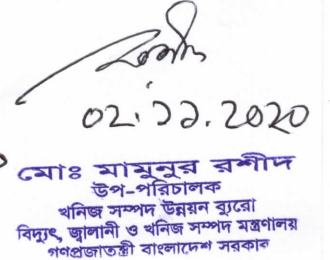 ০২.১১.২০২০
মোঃ মামুনুর রশীদ
উপ-পরিচালক
খনিজ সম্পদ উন্নয়ন ব্যুরো
বিদ্যুৎ, জ্বালানী ও খনিজ সম্পদ মন্ত্রণালয়
গণপ্রজাতন্ত্রী বাংলাদেশ সরকার